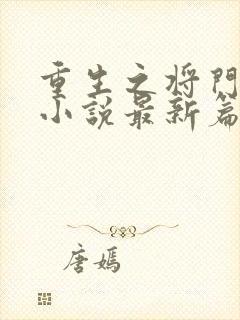 重生之将门
小说最新篇
唐嫣